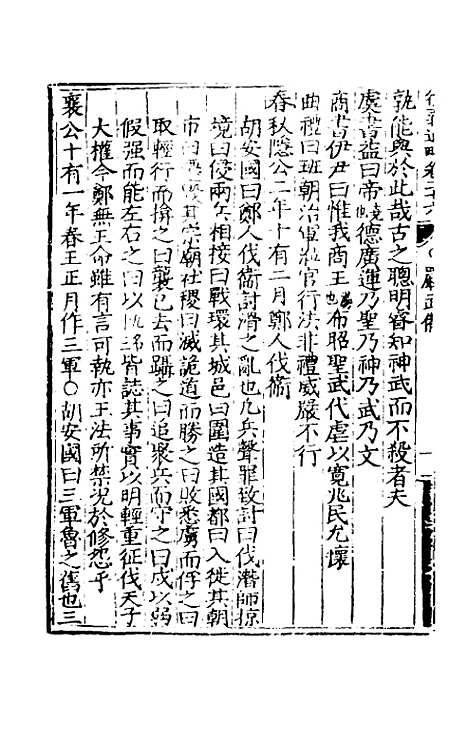 孰能與於此哉古之聰明睿知神武而不殺者夫
虞書益曰帝德廣運乃聖乃神乃武乃文
商書伊尹曰惟我商王布昭聖武代虐以寬兆民允懷
曲禮曰班朝治軍涖官行法非禮威嚴不行
春秋隱公二年十有二月鄭人伐衛
胡安國曰鄭人伐衛討滑之亂也凡兵聲罪致討曰伐潛師掠
境曰侵兩兵相接曰戰環其城邑曰圍造其國都曰入徙其朝
市曰遷毀其宗廟社稷曰滅詭道而勝之曰敗悉虜而俘之曰
取輕行而揜之曰襲已去而躡之曰追聚兵而守之曰戍以弱
假强而能左右之曰以皆誌其事實以明輕重征伐天子
大權今鄭無王命雖有言可執亦王法所禁况於修怨乎
襄公十有一年春王正月作三軍○胡安國曰三軍魯之舊也三